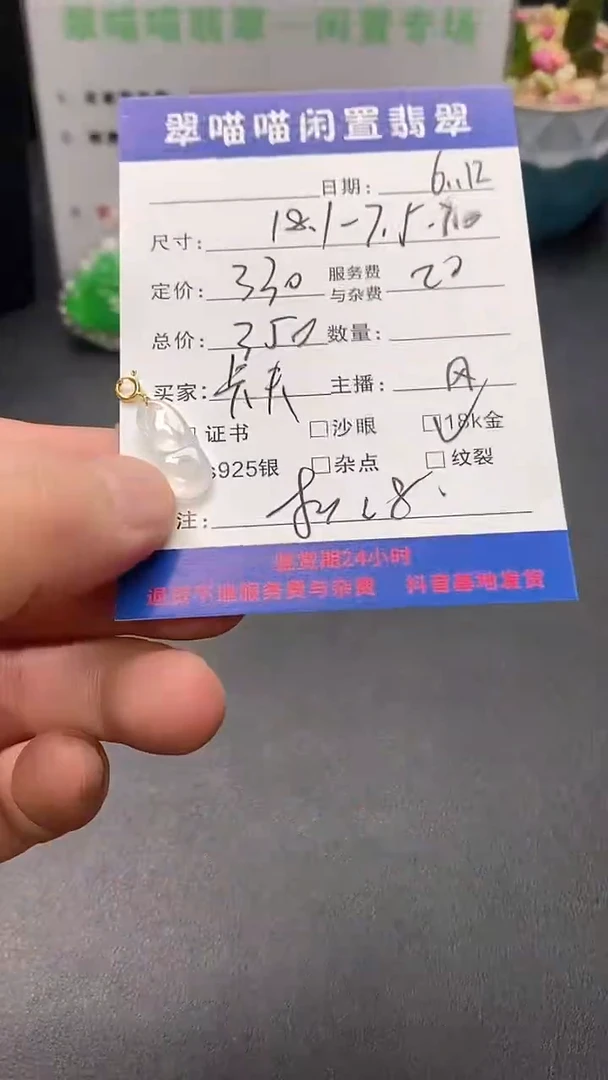 翠喵喵翡翠一闲置专场
翠喵喵闲置翡翠
日期: 6.12
尺寸: 18.1-7.5
定价: 330 服务费与杂费 20
总价: 350 数量:
买家: 主播: 风
证书 □沙眼 ☑18k金
s925银 □杂点 □纹裂
注:
鉴赏期24小时
退货不退服务费与杂费 抖音基地发货